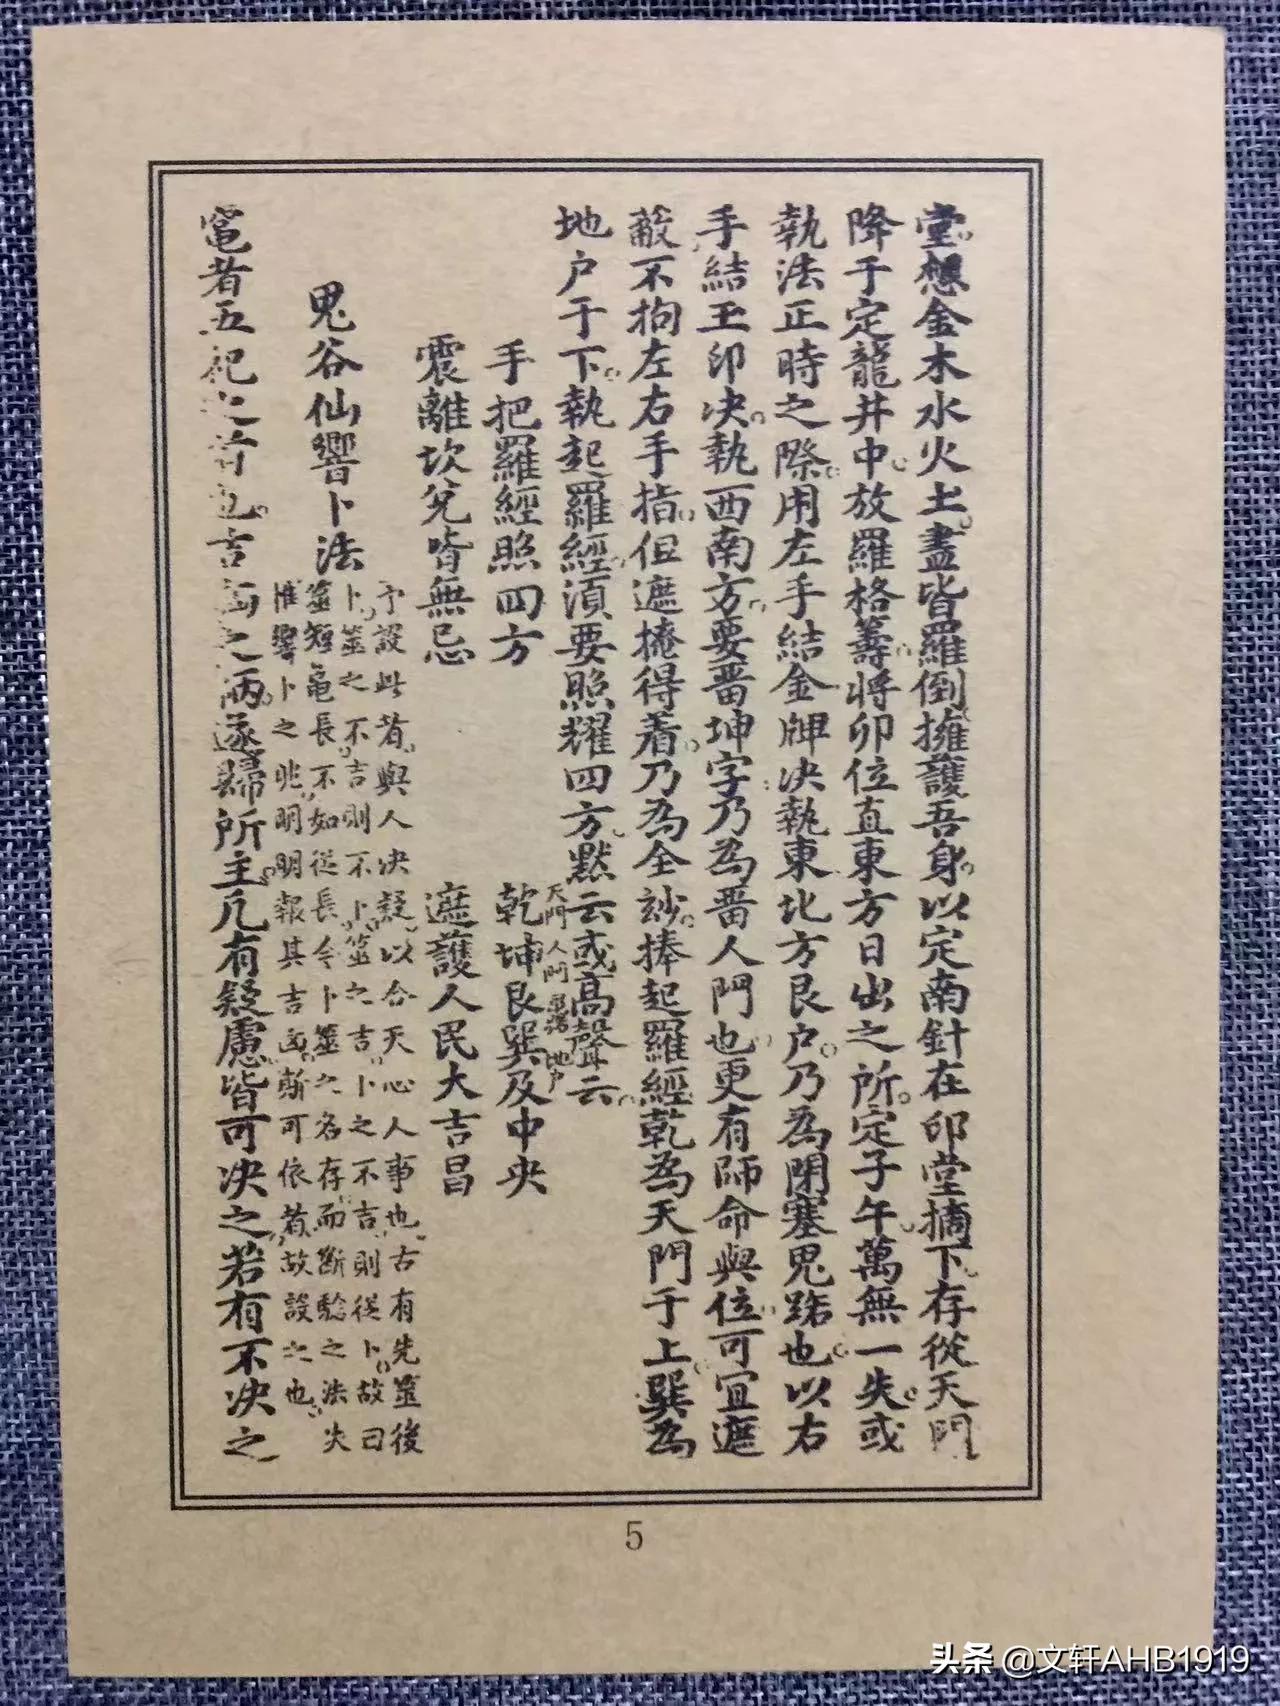 堂想金木水火土盡皆羅倒擁護吾身以定南針在印堂摘下存從天門
降于定龍井中放羅格籌將卯位直東方日出之所定子午萬無一失或
執法正時之際用左手結金牌决執東北方艮户乃為閉塞鬼路也以右
手結玉印决執西南方要番坤字乃為番人門也更有師命與位可宜遮
蔽不拘左右手指但遮掩得着乃為全妙捧起羅經乾為天門于上巽為
地户于下執起羅經須要照耀四方黙云或高聲云
天門 人門 鬼路 地户
手把羅經照四方 乾坤艮巽及中央
震離坎兌皆無忌 遮護人民大吉昌
鬼谷仙響卜法
予設此者與人决疑以合天心人事也古有先筮後
卜筮之不吉則不卜筮之吉卜之不吉則從卜故曰
筮短龜長不如從長今卜筮之名存而斷驗之法失
惟響卜之兆明明報其吉凶斷可依者故設之也
竈者五祀之首也吉凶之柄逐歸所主凡有疑慮皆可决之若有不决之
5
头条 @文轩AHB1919